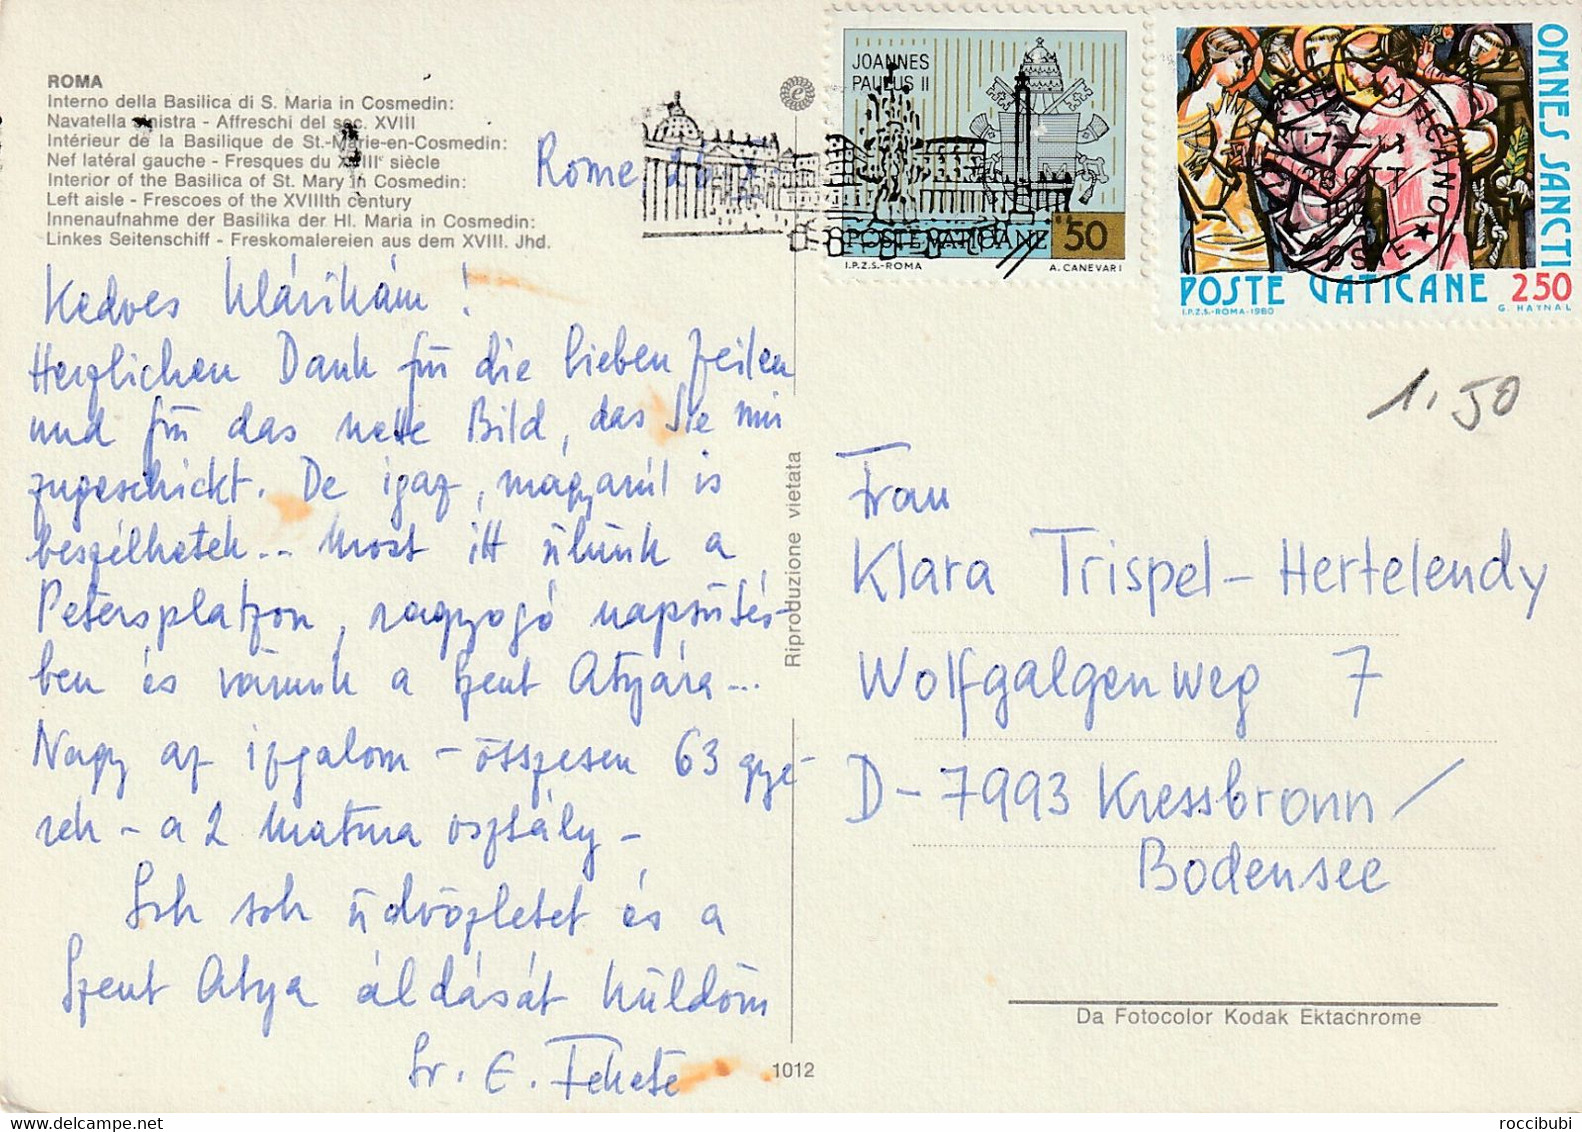 ROMA
Interno della Basilica di S. Maria in Cosmedin:
Navatella sinistra - Affreschi del sec. XVIII
Intérieur de la Basilique de St.-Marie-en-Cosmedin:
Nef latéral gauche - Fresques du XVIIIe siècle
Interior of the Basilica of St. Mary in Cosmedin:
Left aisle - Frescoes of the XVIIIth century
Innenaufnahme der Basilika der Hl. Maria in Cosmedin:
Linkes Seitenschiff - Freskomalereien aus dem XVIII. Jhd.
Rome
Kedves Klárikám!
Herzlichen Dank für die lieben Zeilen
und für das nette Bild, das Sie mir
zugeschickt. De igaz, magyarúl is
beszélhetek... Most itt ülünk a
Petersplatzon, ragyogó napsütés-
ben és várunk a Szent Atyára...
Nagy az izgalom - összesen 63 gye-
rek - a 2 matura osztály -
Sok sok üdvözletet és a
Szent Atya áldását küldöm
Sr. E. Fekete
Riproduzione vietata
1012
JOANNES
PAULUS II
POSTE VATICANE 50
I.P.Z.S.-ROMA A. CANEVARI
OMNES SANCTI
POSTE VATICANE 250
I.P.Z.S.-ROMA-1980 G. HAYNAL
1,50
Frau
Klara Trispel-Hertelendy
Wolfgalgenweg 7
D-7993 Kressbronn/
Bodensee
Da Fotocolor Kodak Ektachrome
roccibubi